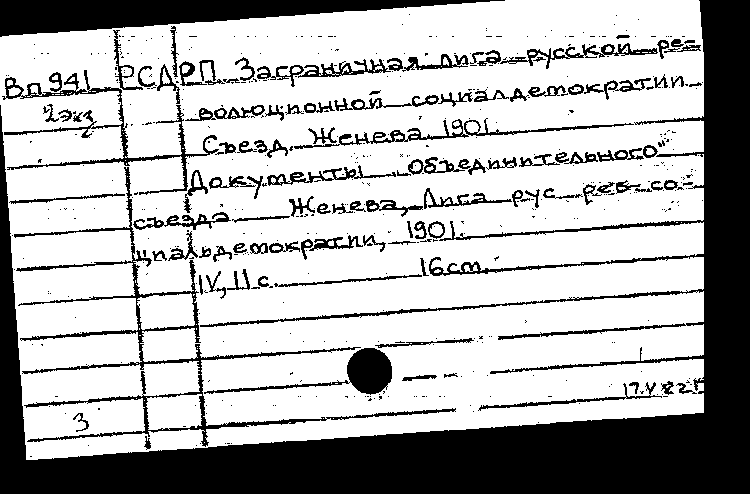 Вп941 РСДРП Заграничная лига русской ре-
2 экз волюционной социалдемократии
Съезд. Женева. 1901.
Документы „Объединительного"
съезда Женева, Лига рус рев-со-
циальдемократии, 1901.
IV, 11 с. 16cm.
3